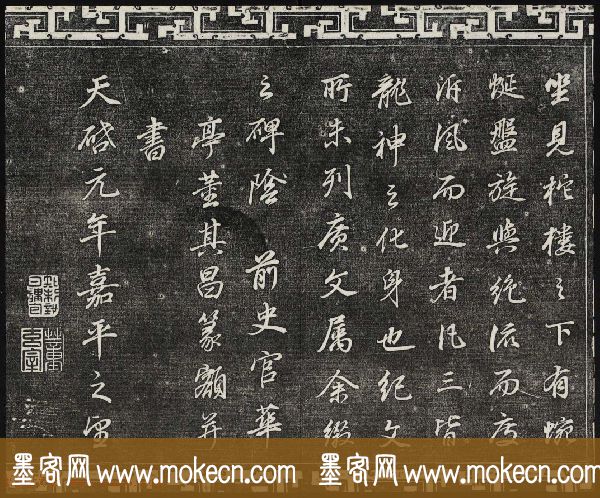 坐見柁樓之下有蜿
蜒盤旋與絶流而度
泝風而迎者凡三皆
龍神之化身也紀文
所未列廣文属余綴
之碑陰 前史官華
亭董其昌篆額并
書
天啓元年嘉平之望
墨客网 www.mokecn.com 墨客网 www.mokecn.com